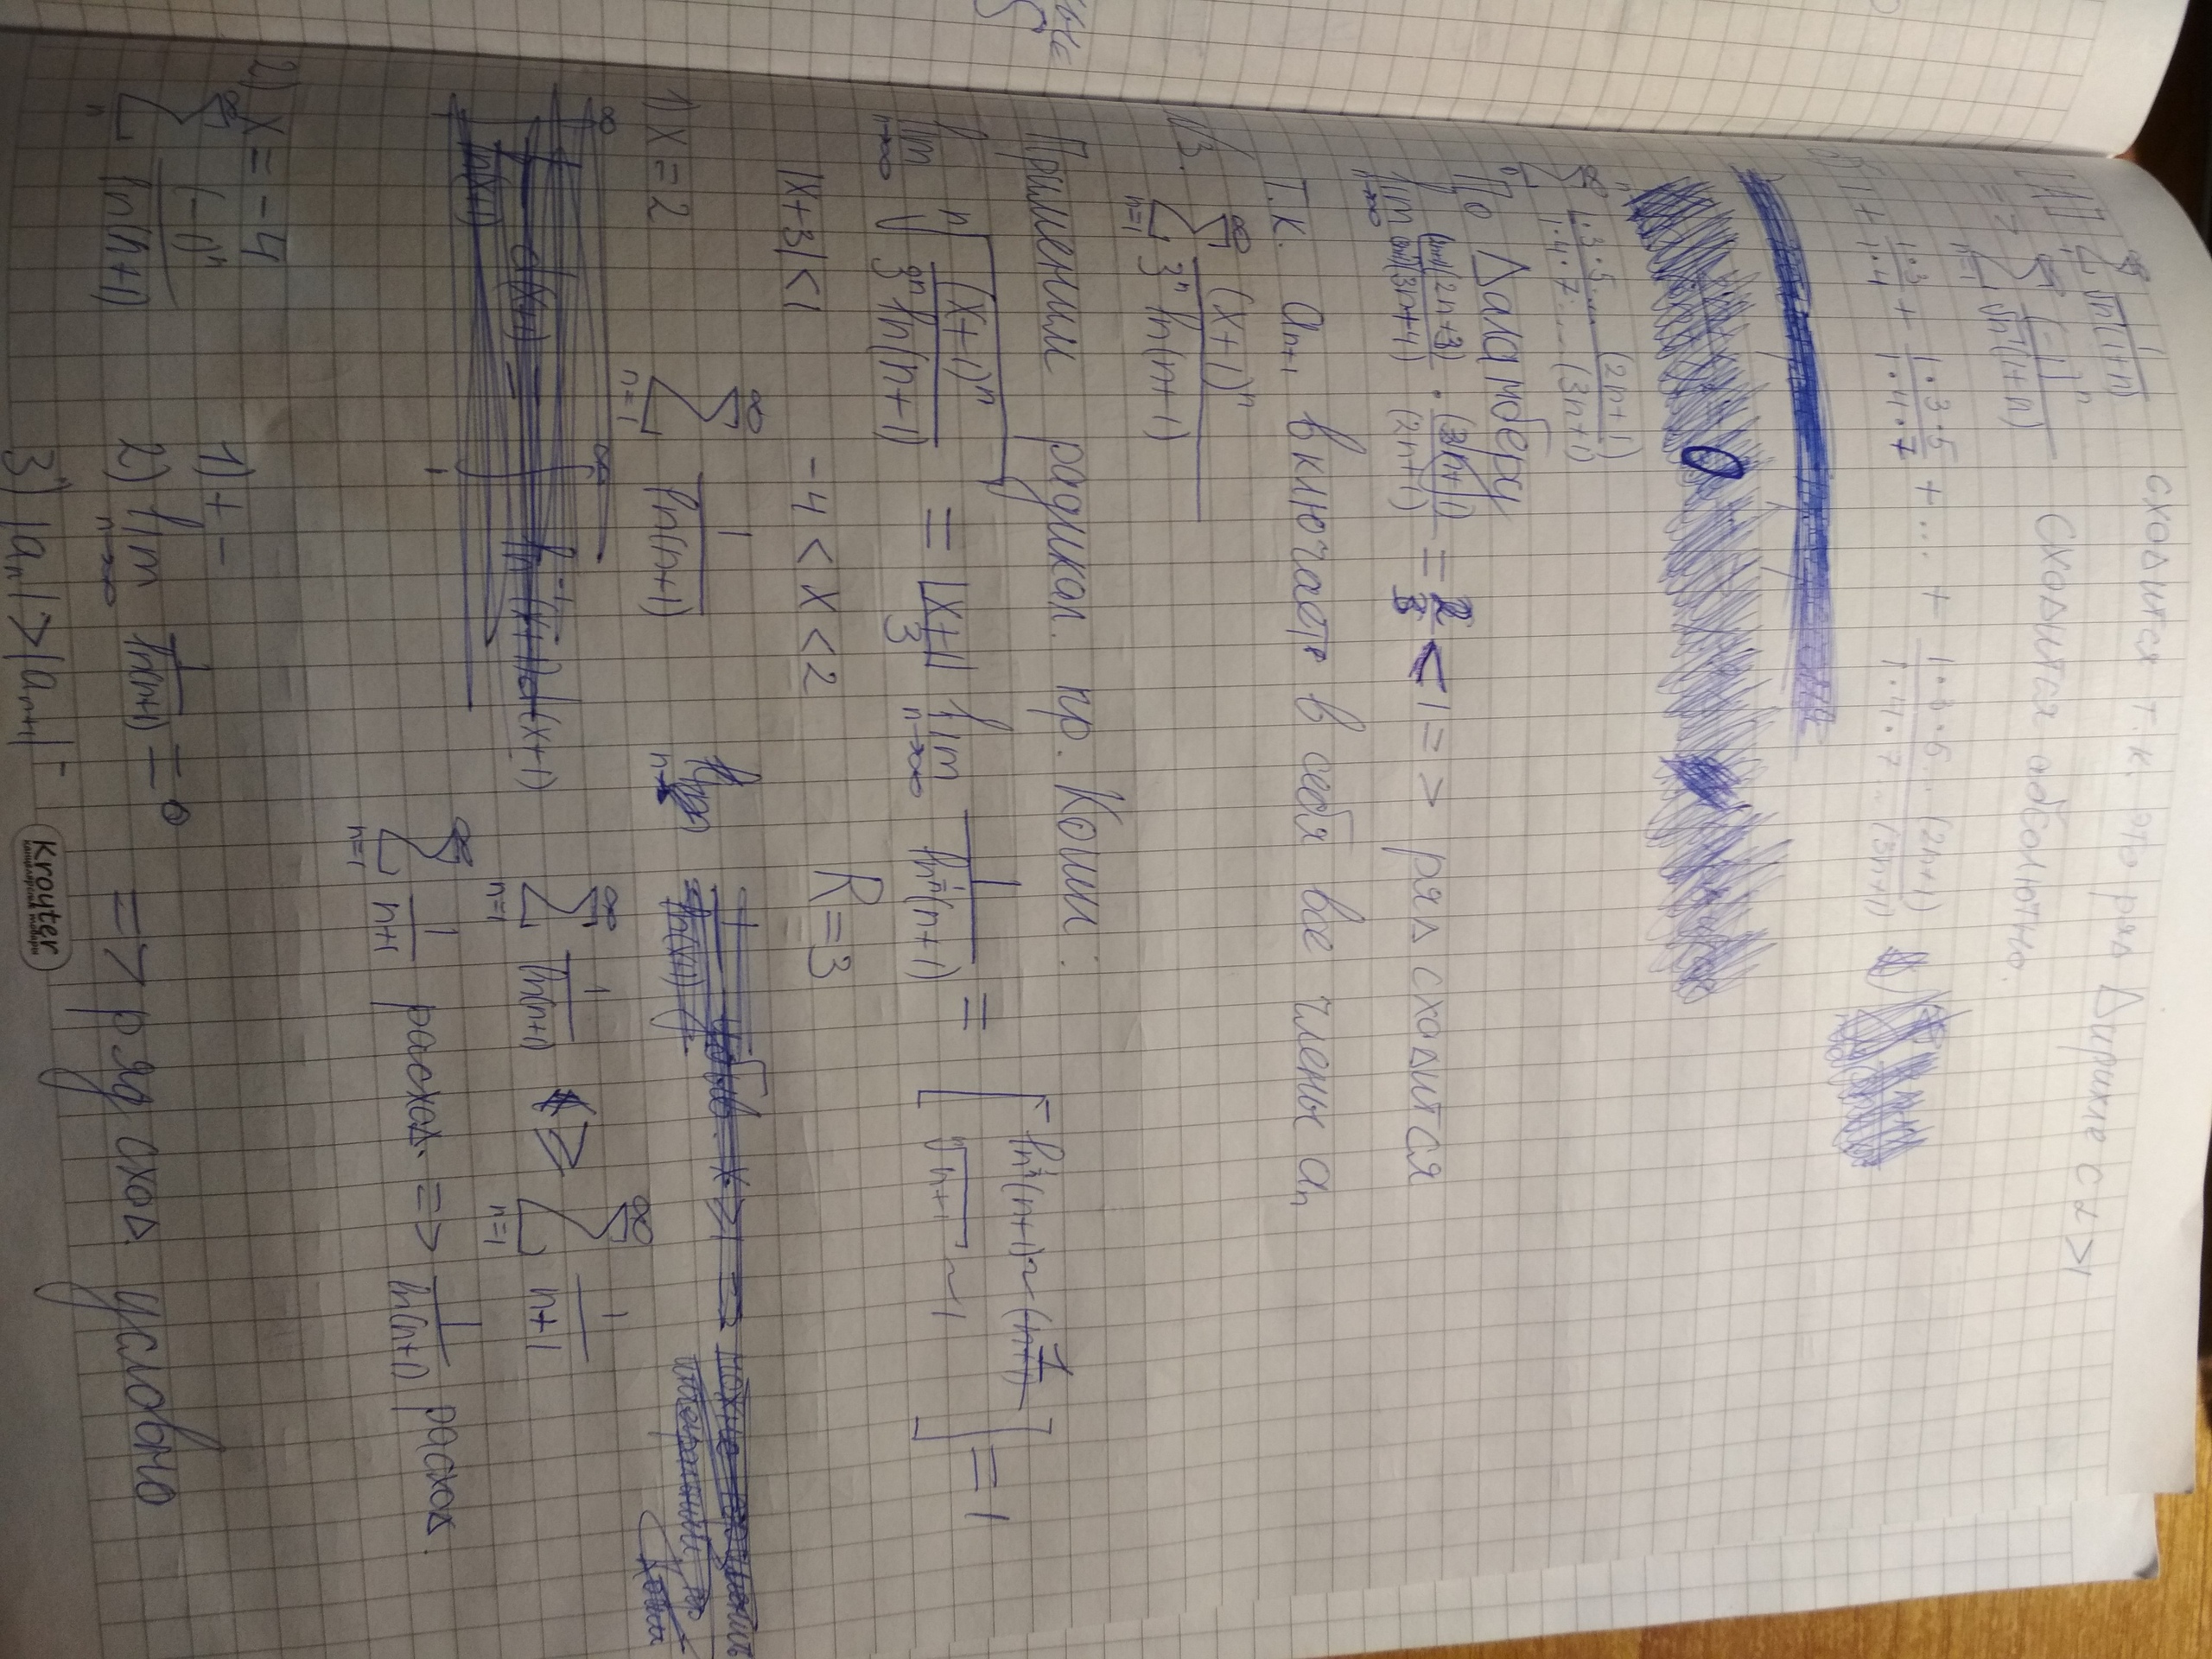 |A| ∑₁^∞ 1/(√n(1+n)) сходится т.к. это ряд Дирихле с α >1
=> ∑_{n=1}^∞ (-1)^n/(√n(1+n)) сходится абсолютно.
1 + 1·3/1·4 + 1·3·5/1·4·7 + ... + 1·3·5...(2n+1)/1·4·7...(3n+1)
∑₀^∞ 1·3·5...(2n+1)/1·4·7...(3n+1)
По Даламберу
lim_{n→∞} (2n+1)(2n+3)/(3n+1)(3n+4) · (3n+1)/(2n+1) = 2/3 < 1 => ряд сходится
т.к. a_{n+1} включает в себя все члены a_n
№3. ∑_{n=1}^∞ (x+1)^n/(3^n ln(n+1))
Применим радикал. пр. Коши:
lim_{n→∞} ⁿ√((x+1)^n/(3^n ln(n+1))) = |x+1|/3 lim_{n→∞} 1/(ln^{1/n}(n+1)) = [ln^{1/n}(n+1) ~ ⁿ√(n+1) ~ 1] = 1
|x+3|<1 -4 < x < 2 R = 3
1) x = 2 ∑_{n=1}^∞ 1/ln(n+1)
∑_{n=1}^∞ 1/ln(n+1) ≥ ∑_{n=1}^∞ 1/(n+1)
∑_{n=1}^∞ 1/(n+1) расход. => 1/ln(n+1) расход.
2) x = -4
∑_n^∞ (-1)^n/ln(n+1)
1) + -
2) lim_{n→∞} 1/ln(n+1) = 0 => ряд сход. условно
3) |a_n| > |a_{n+1}|
Krouter
канцелярские товары